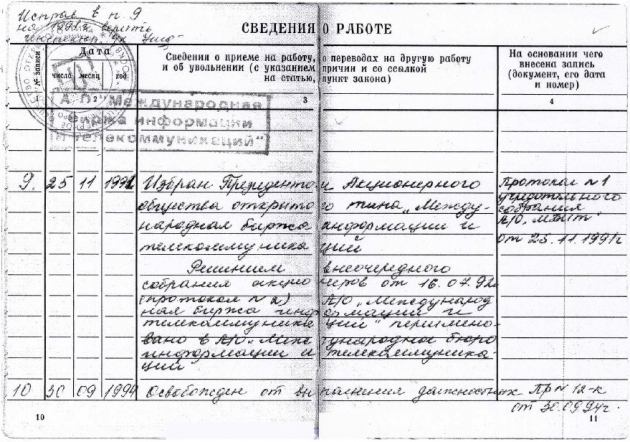 Исправ. в п 9
на 1991г. верить
СВЕДЕНИЯ О РАБОТЕ
№ записи
Дата
число
месяц
год
Сведения о приеме на работу, о переводах на другую работу
и об увольнении (с указанием причин и со ссылкой
на статью, пункт закона)
На основании чего
внесена запись
(документ, его дата
и номер)
1
2
3
4
А.О. "Международная
биржа информации
и телекоммуникаций"
9. 25 11 1991 Избран Президентом Акционерного
общества открытого типа „Между-
народная биржа информации и
телекоммуникаций
Протокол №1
учредительного
собрания
А/О „МБИТ"
от 25.11.1991г
Решением внеочередного
собрания акционеров от 16.07.92г
(протокол №2) А/О „Международ
ная биржа информации и
телекоммуникаций" переимено-
вано в А/О „Международное бюро
информации и телекоммуника-
ций
10 30 09 1994 Освобожден от выполнения должностных
Пр №12-к
от 30.09.94г.
10
11